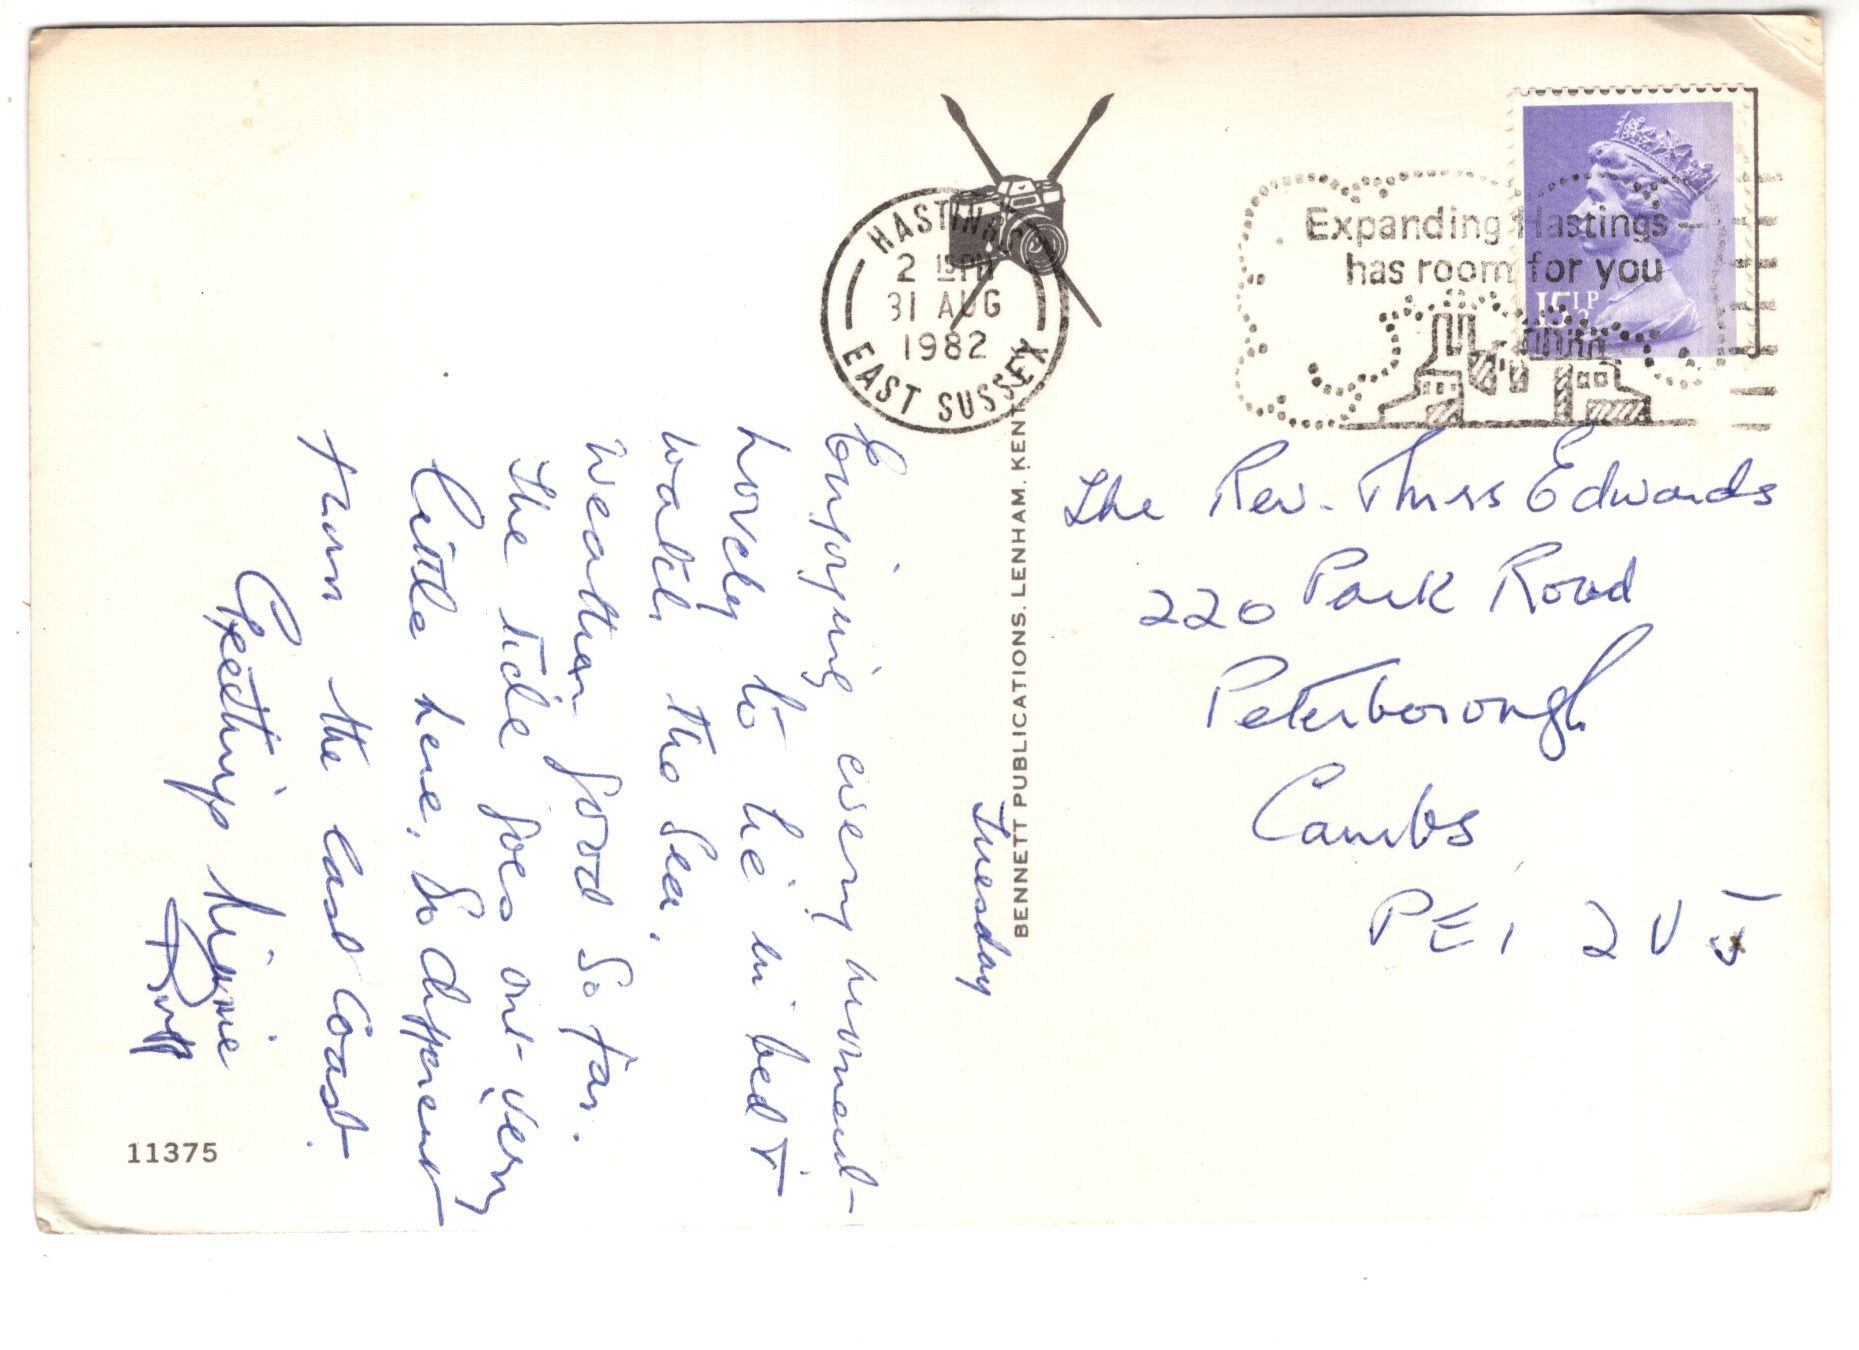 HASTINGS
2 15PM
31 AUG
1982
EAST SUSSEX
Expanding Hastings
has room for you
15½P
BENNETT PUBLICATIONS. LENHAM. KENT
The Rev. Miss Edwards
220 Park Road
Peterborough
Cambs
PE1 2U
Tuesday
Enjoying every moment
Lovely to lie in bed +
watch the Sea.
Weather good so far.
The tide goes out very
little here, so different
from the East Coast.
Greetings Minnie
11375